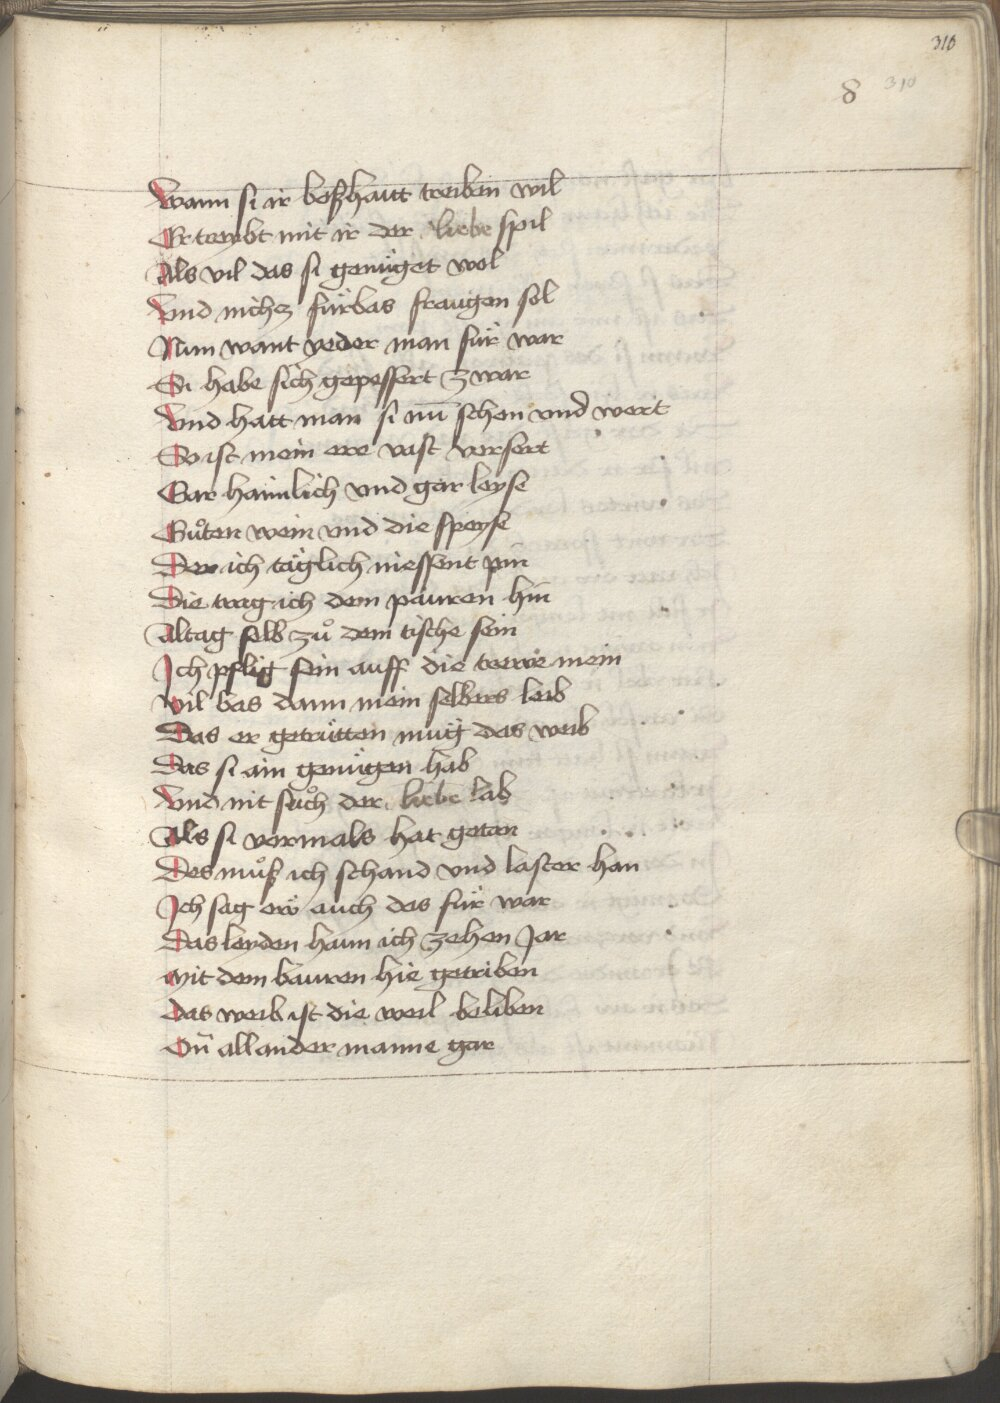 310
8 310
Wann si ir boßhaitt treiben wil
Er treybt mit ir der liebe spil
Als vil das si genüget wol
Vnd nichcz fürbas fraugen sol
Nun want yeder man für war
Si habe sich gepessert zwar
Vnd hatt man si nu̅ schon vnd wert
So ist mein ere vast versert
Gar haimlich vnd gar leyse
Gůten wein vnd die speyse
Der ich täglich niessent pin
Die trag ich dem pauren hin
Altag selb zů dem tische sein
Ich pflig sein auff die trewe mein
Vil bas dann mein selbers leib
Das er getrütten müg das weib
Das si ain genügen hab
Vnd nit sůch der liebe lab
Als si vormals hat getan
Des můß ich schand vnd laster han
Ich sag ew auch das für war
Das leyden hann ich zehen Jar
Mit dem bauren hie getriben
Das weib ist die weil beliben
On all ander manne gar